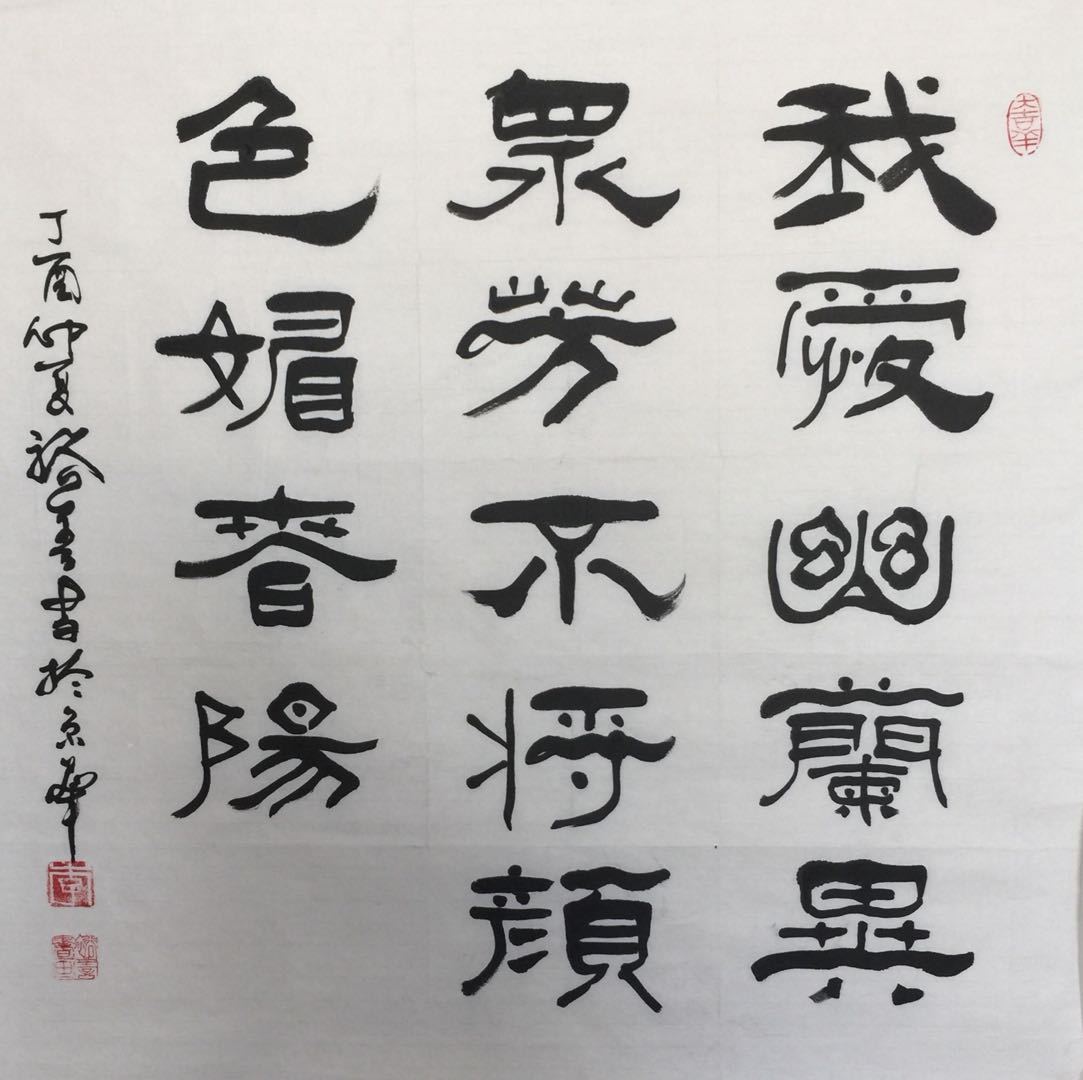 我愛幽蘭異
眾芳不將顏
色媚春陽
丁酉仲夏 書於京華